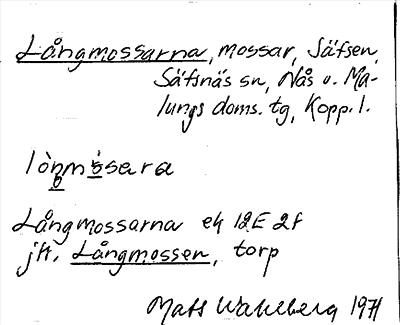 Långmossarna, mossar, Säfsen,
Säfsnäs sn, Nås o. Ma-
lungs doms. tg, Kopp. l.
lòŋmòsara
Långmossarna ek 12E 2f
jfr. Långmossen, torp
Mats Wahlberg 1971